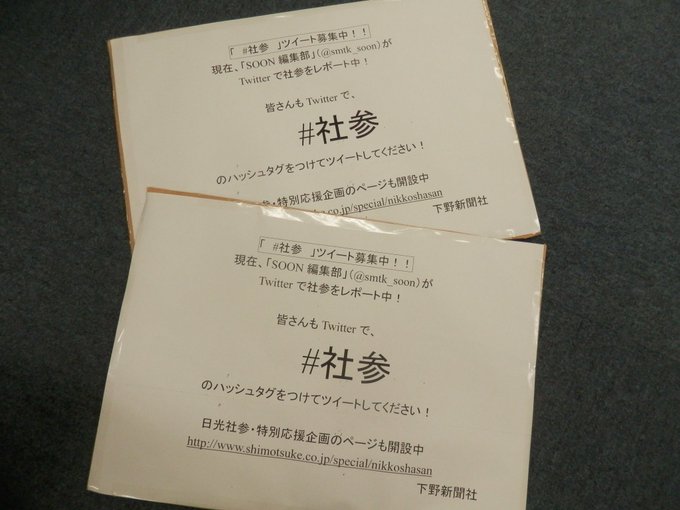 「 #社参 」ツイート募集中！！
現在、「SOON 編集部」（@smtk_soon）が
Twitter で社参をレポート中！
皆さんも Twitter で、
#社参
のハッシュタグをつけてツイートしてください！
参・特別応援企画のページも開設中
e.co.jp/special/nikkoshasan
下野新聞社
「 #社参 」ツイート募集中！！
現在、「SOON 編集部」（@smtk_soon）が
Twitter で社参をレポート中！
皆さんも Twitter で、
#社参
のハッシュタグをつけてツイートしてください！
日光社参・特別応援企画のページも開設中
http://www.shimotsuke.co.jp/special/nikkoshasan
下野新聞社